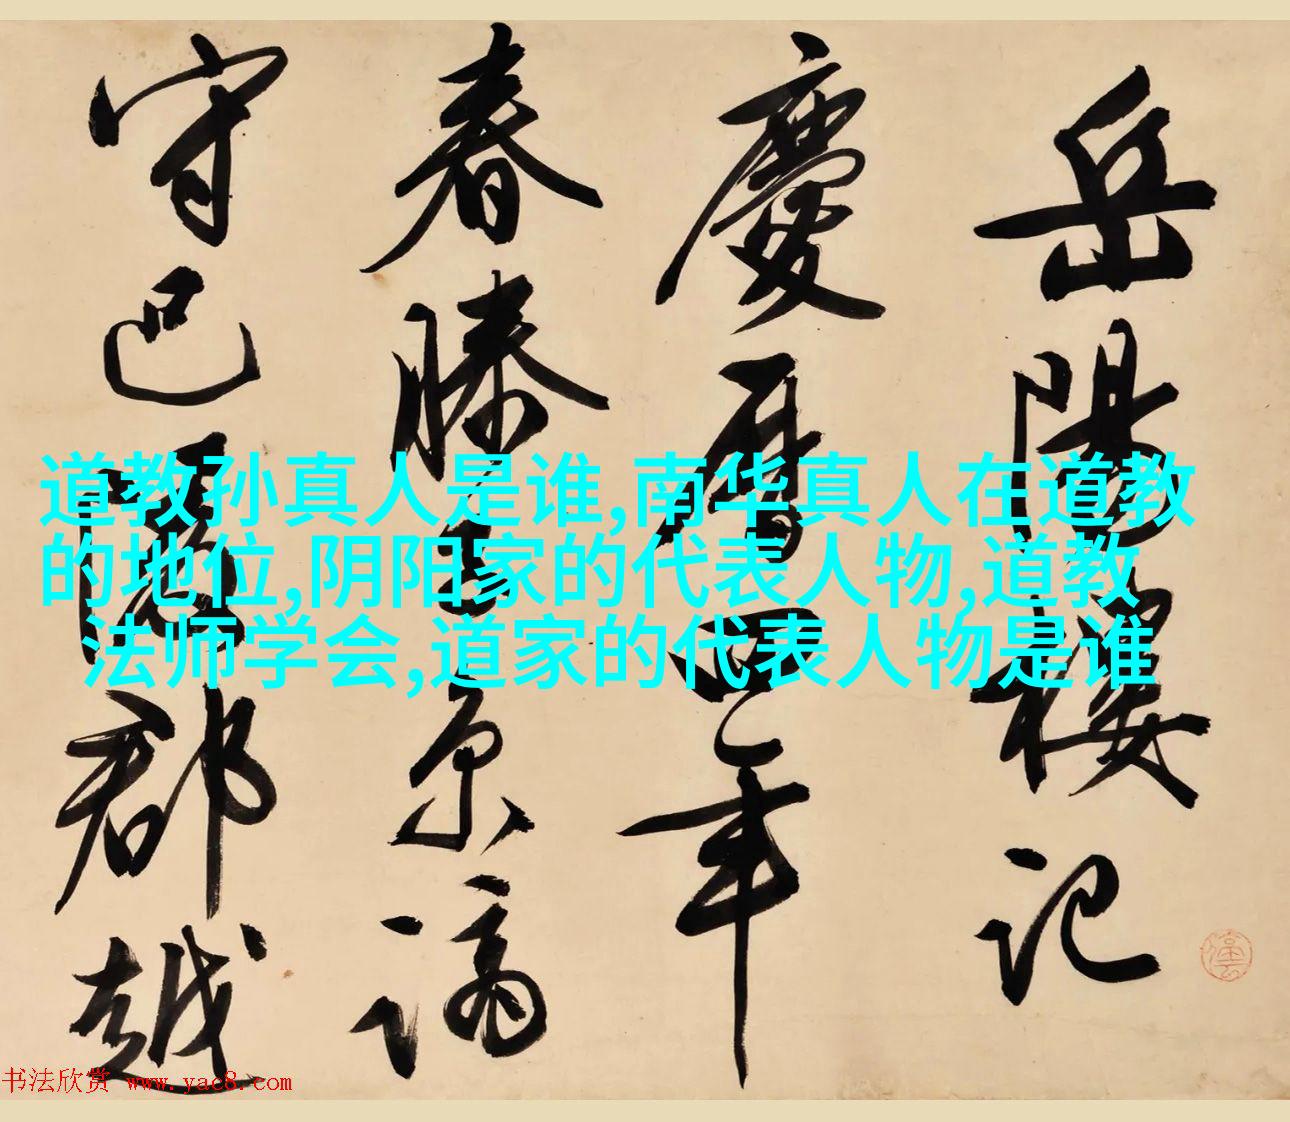 岳陽樓記
慶曆四年
春滕子京謫
守巴陵郡越
道教孙真人是谁,南华真人在道教
的地位,阴阳家的代表人物,道教
法师学会,道家的代表人物是谁
书法欣赏 www.yac8.com